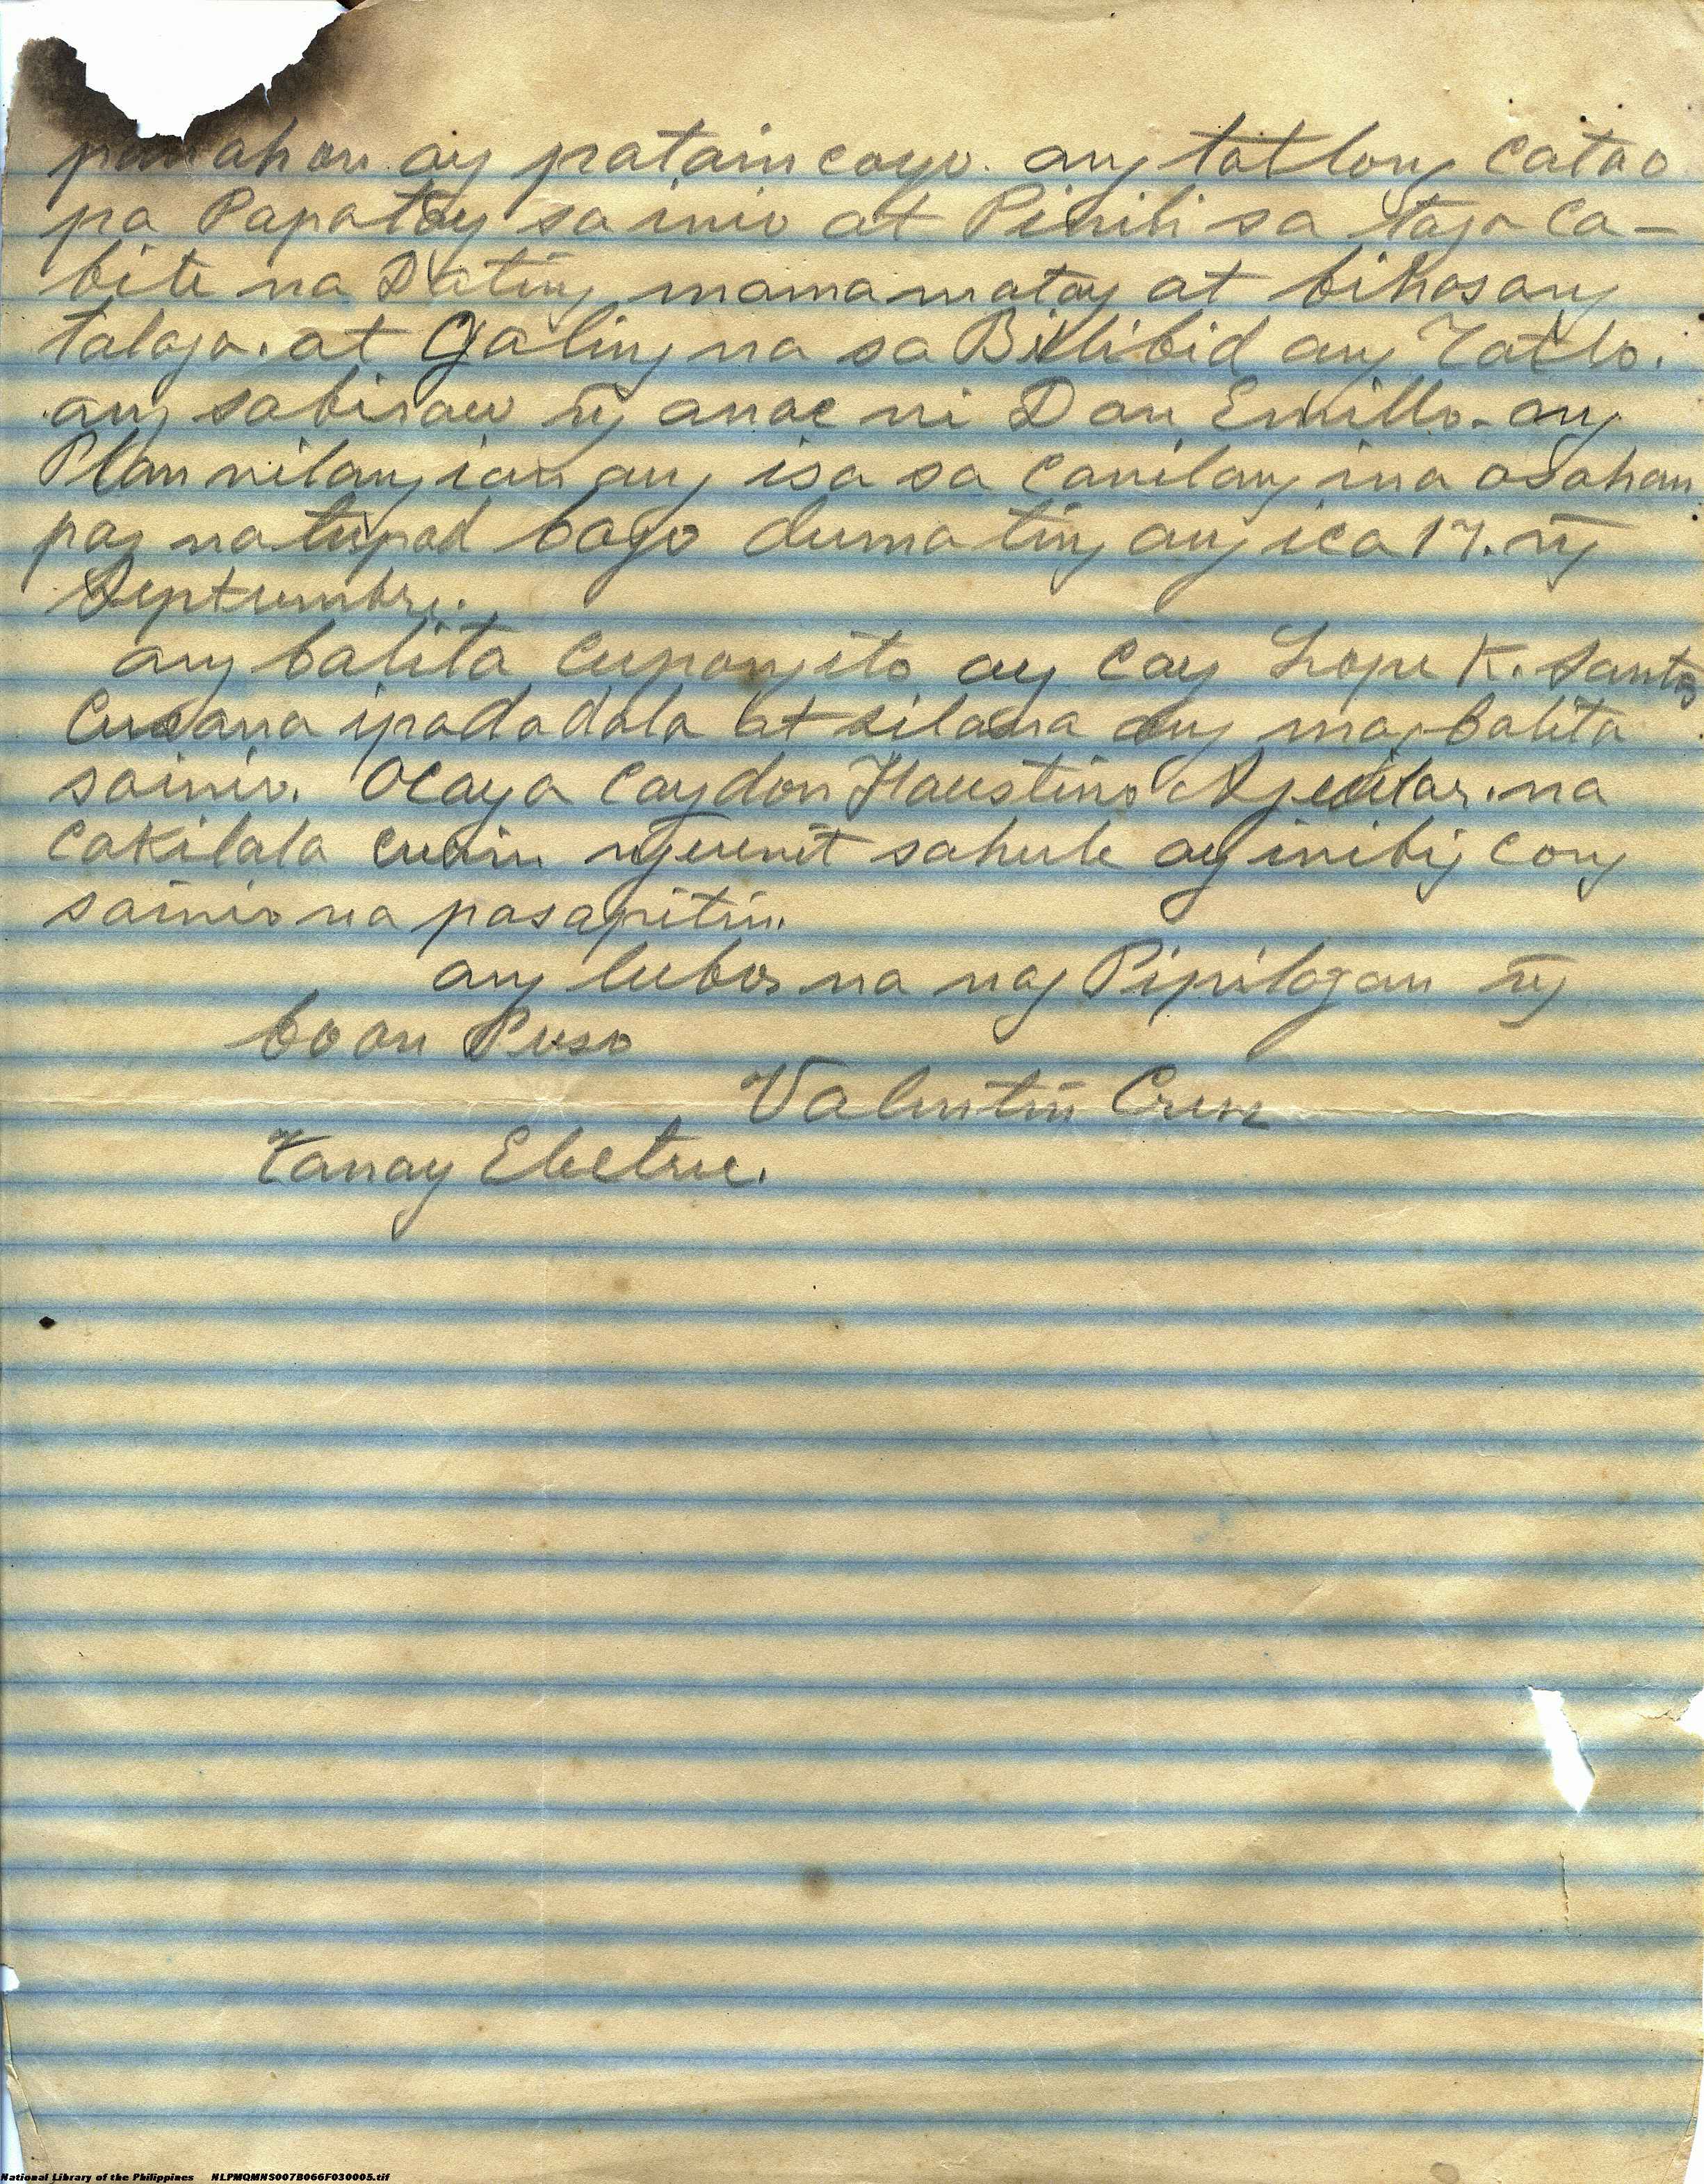 panahon ay patain cayo. ang tatlong catao
pa Papatay sa inio at Pinili sa taga Ca-
bite na Dating mamamatay at bihasang
talaga. at Galing na sa Billibid ang Tatlo.
ang sabiraw ng̃ anac ni Don Emillo. ang
Plan nilang ian ang isa sa canilang ina asahan
pag natupad bago dumating ang ica 17. ng̃
Septembre.
ang balita cupong ito ay cay Lope K. Santos
Cusana ipadadala at silana ang mag balita
sainio. Ocaya caydon Faustino Aguilar. na
cakilala cudin ng̃unit sahule ay inibig cong
sainio na pasapitin.
ang lubos na nag Pipilagan ng̃
boon Puso
Valentin Cruz
Tanay Electric.
National Library of the Philippines NLPMQMNS007B066F030005.tif